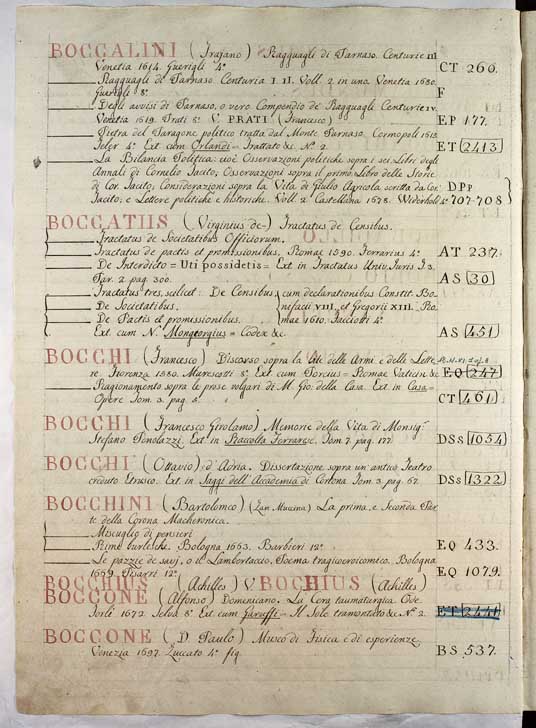 BOCCALINI (Trajano) Ragguagli di Parnaso. Centurie III
Venetia 1614. Guerigli 4.° CT 266.
Ragguagli di Parnaso. Centuria I. II. Voll. 2 in uno. Venetia 1680.
Guerigli 8.° F
Degli avvisi di Parnaso, o vero Compendio de' Ragguagli Centurie IV.
Venetia 1619. Prati 8.° V. PRATI (Francesco) EP 177.
Pietra del Paragone politico tratta dal Monte Parnaso. Cormopoli
4.° Ext. cum Orlandi = Trattato &c. N.° 2. ET 2413
La Bilancia Politica: cioè Osservazioni politiche sopra i sei Libri degli
Annali di Cornelio Tacito; Osservazioni sopra il primo Libro delle Storie
di Cor. Tacito; Considerazioni sopra la Vita di Giulio Agricola scritta da Cor. DPp
Tacito; e Lettere politiche e historiche. Voll. 2 Castellana 1678. Wederhold 4.° 707-708
BOCCATIIS (Virginius de) Tractatus de Censibus.
Tractatus de Societatibus Officiorum.
Tractatus de pactis et promissionibus. Romae 1590. Ferrarius 4.° AT 237.
De Interdicto = Uti possidetis = Ext. in Tractatus Univ. Juris T. 3.
Par. 2. pag. 300. AS 30
Tractatus tres, scilicet: De Censibus cum declarationibus Constit. Bo-
De Societatibus. nefacii VIII. et Gregorii XIII. Ro-
De Pactis et promissionibus. mae 1610. Facciotti 4.°
Ext. cum N.° Montgergius = Codex &c. AS 451
BOCCHI (Francesco) Discorso sopra la lite delle Armi e delle Lette-
re. Fiorenza 1580. Marescotti 8.° Ext. cum = Romae Vatici &c. EQ 247
Ragionamento sopra le prose volgari di M. Gio. della Casa. Ext. in Casa =
Opere Tom. 3. pag. 5. CT 461
BOCCHI (Francesco Girolamo) Memorie della Vita di Monsig.r
Stefano Penolazzi. Ext. in Raccolta Ferrarese. Tom. 7. pag. 177. DSs 1054
BOCCHI (Ottavio) d'Adria. Dissertazione sopra un antico Teatro
creduto Etrusco. Ext. in Saggi dell'Accademia di Cortona Tom. 3. pag. 67. DSs 1322
BOCCHINI (Bartolomeo) (Zan Muzzina) La prima, e Seconda Par-
te della Corona Macheronica.
Miscuglio di pensieri
Rime burlesche. Bologna 1663. Barbieri 12.° EQ 433.
Le pazzie de' savj, o il Lambertaccio, Poema tragicoeroicomico. Bologna
1669. Pisarri 12.° EQ 1079.
BOCCHIUS (Achilles) V. BOCHIUS (Achilles)
BOCCONE (Alfonso) Domenicano. La Cera taumaturgia. Ode.
Forlì 1672. Selva 8.° Ext. cum Garuffi = Il Sole tramontato &c. N.° 2. ET 2441
BOCCONE (D. Paulo) Museo di Fisica e di esperienze
Venezia 1697. Zuccato 4.° fig. BS 537.